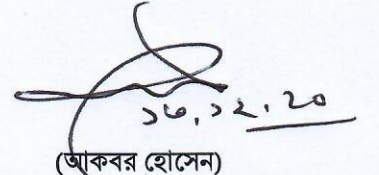 ১৩.১২.২০
(আকবর হোসেন)